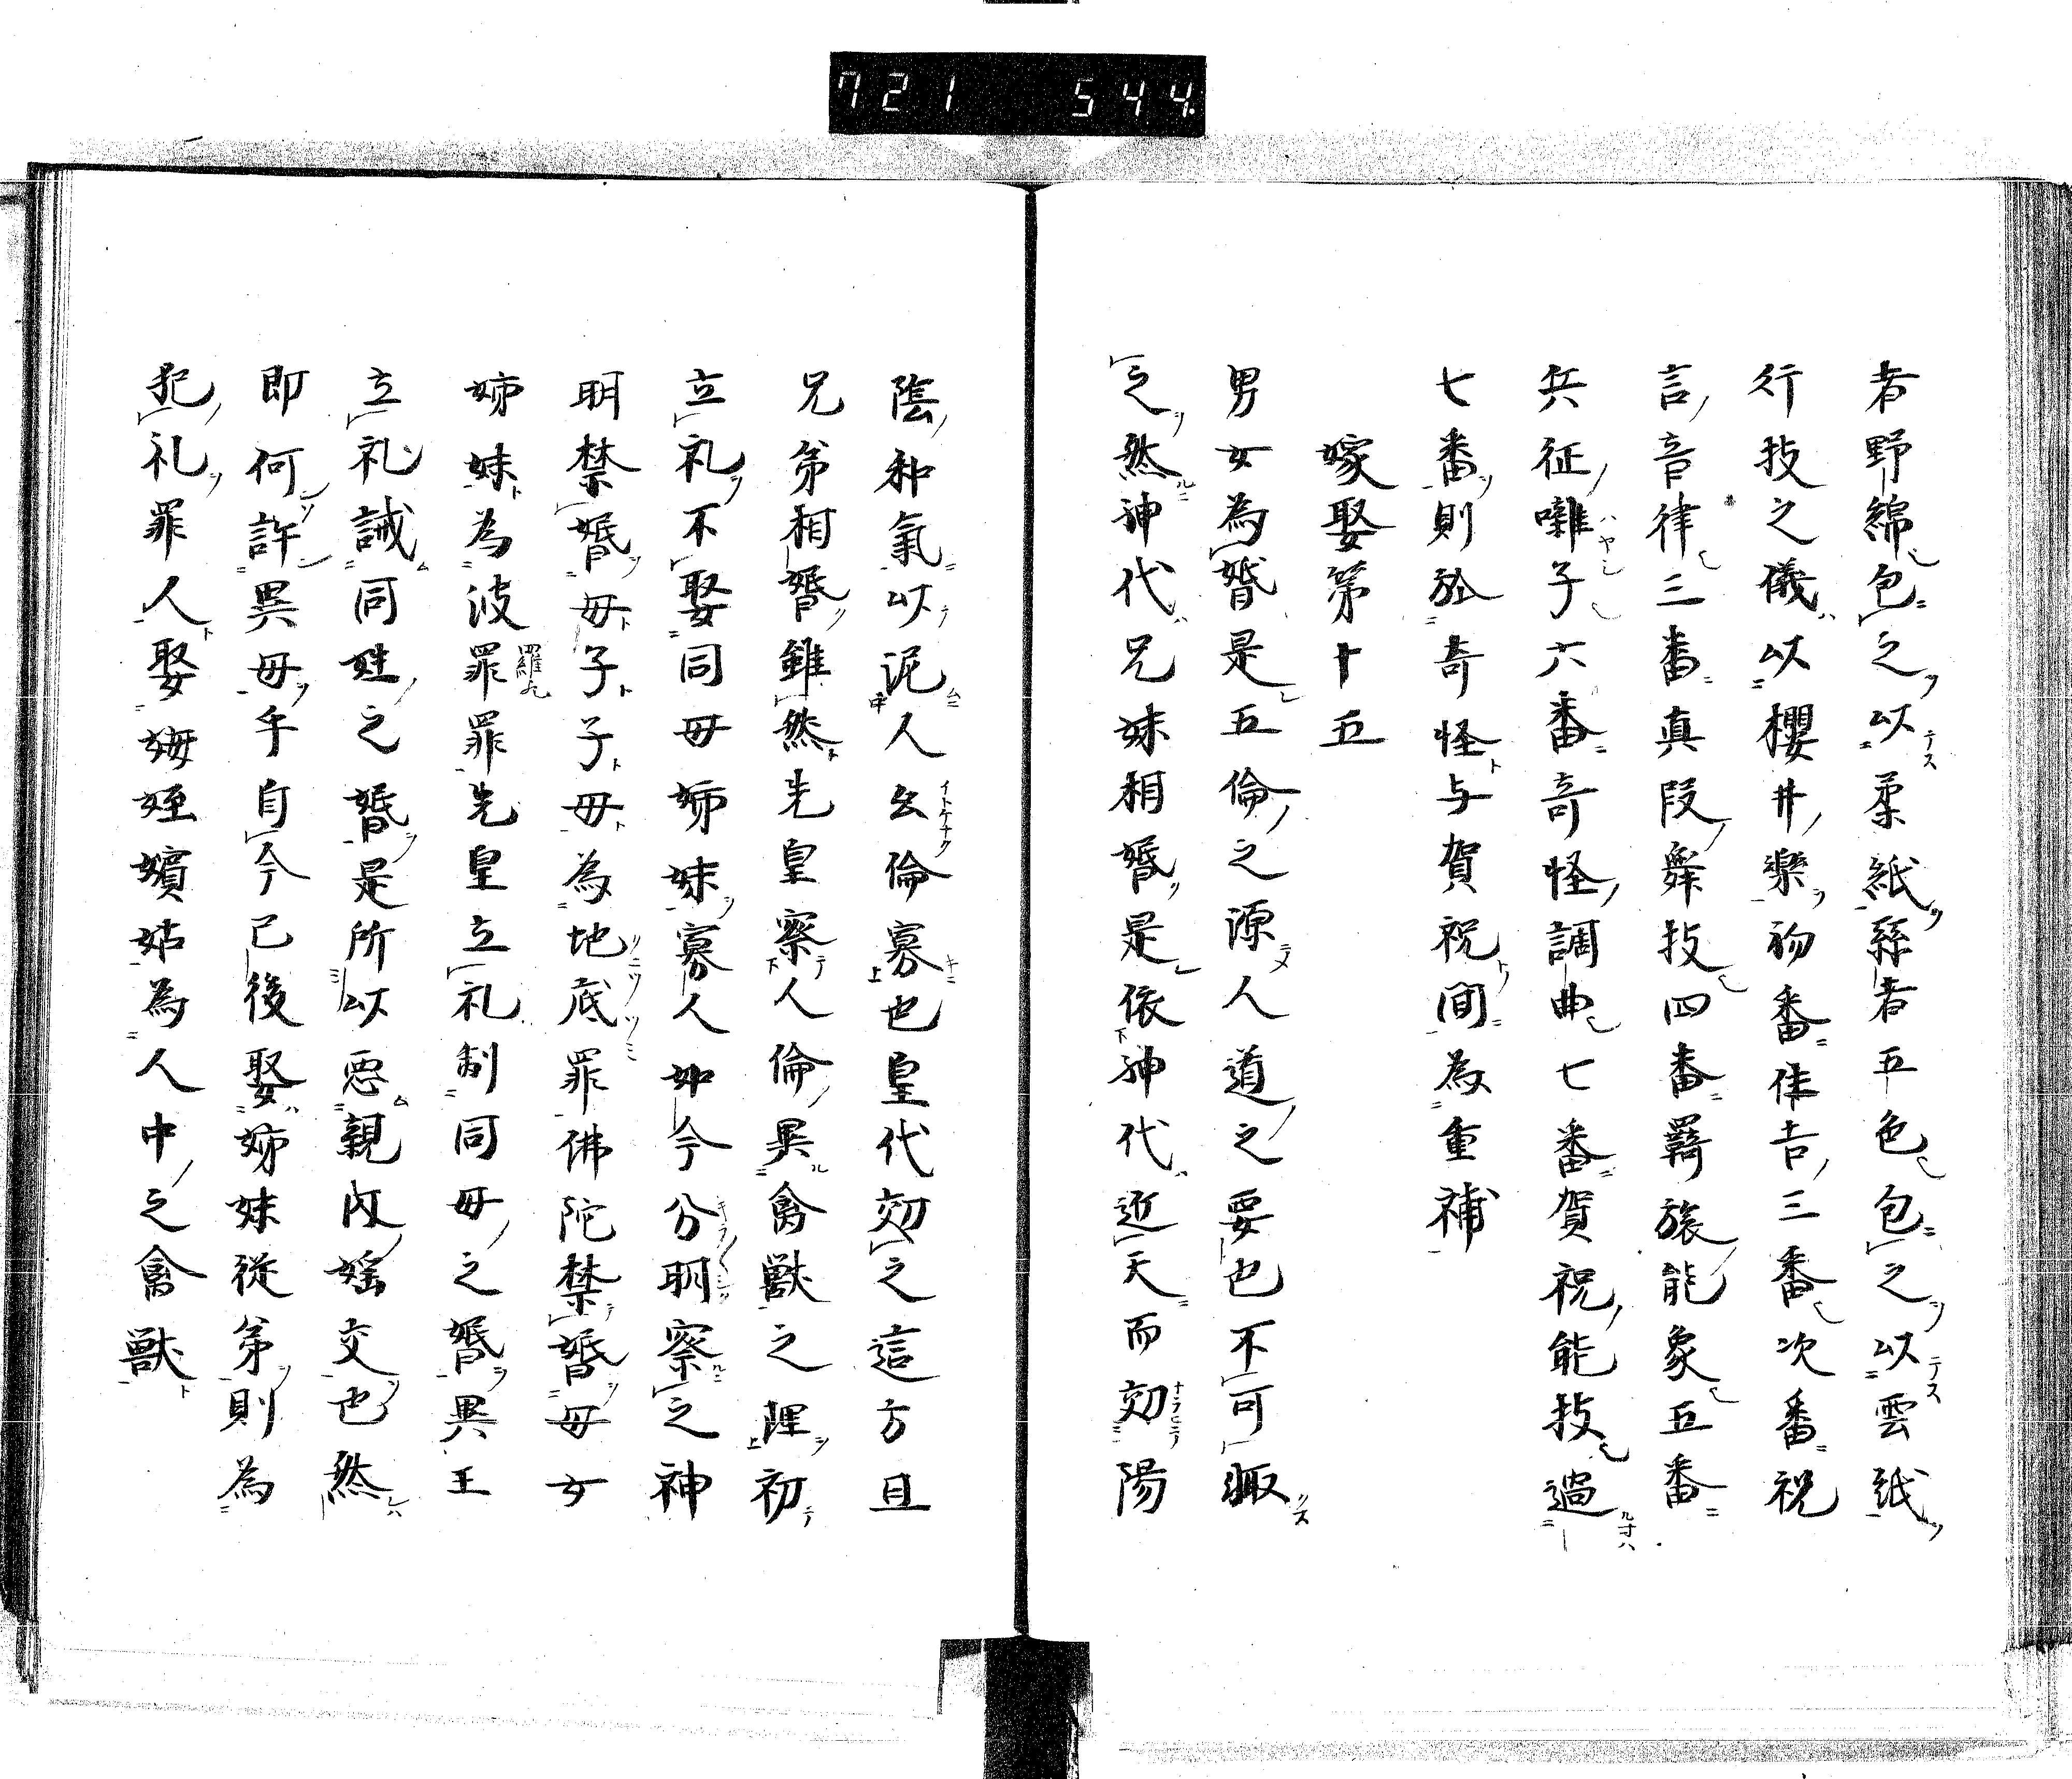 721 544
者野綿包之以柔紙絲者五色包之以雲紙
行技之儀以櫻井樂初番佳吉三番次番祝
言音律三番真段舞技四番羇旅能象五番
兵征囃子六番奇怪調曲七番賀祝能技過
七番則於奇怪与賀祝間為重補
嫁娶第十五
男女為婚是五倫之源人道之要也不可輙
之然神代兄妹相婚是依神代近天而効陽
陰和氣以泥人幺倫寡也皇代効之這方且
兄弟相婚雖然先皇察人倫異禽獣之理初
立礼不娶同母姉妹寡人如今分明察之神
明禁婚母子子母為地底罪佛陀禁婚母女
姉妹為波羅罪先皇立礼制同母之婚異王
立礼誡同姓之婚是所以悪親内婬交也然
即何許異母乎自今已後娶姉妹従弟則為
犯礼罪人娶姆姪嬪姑為人中之禽獣